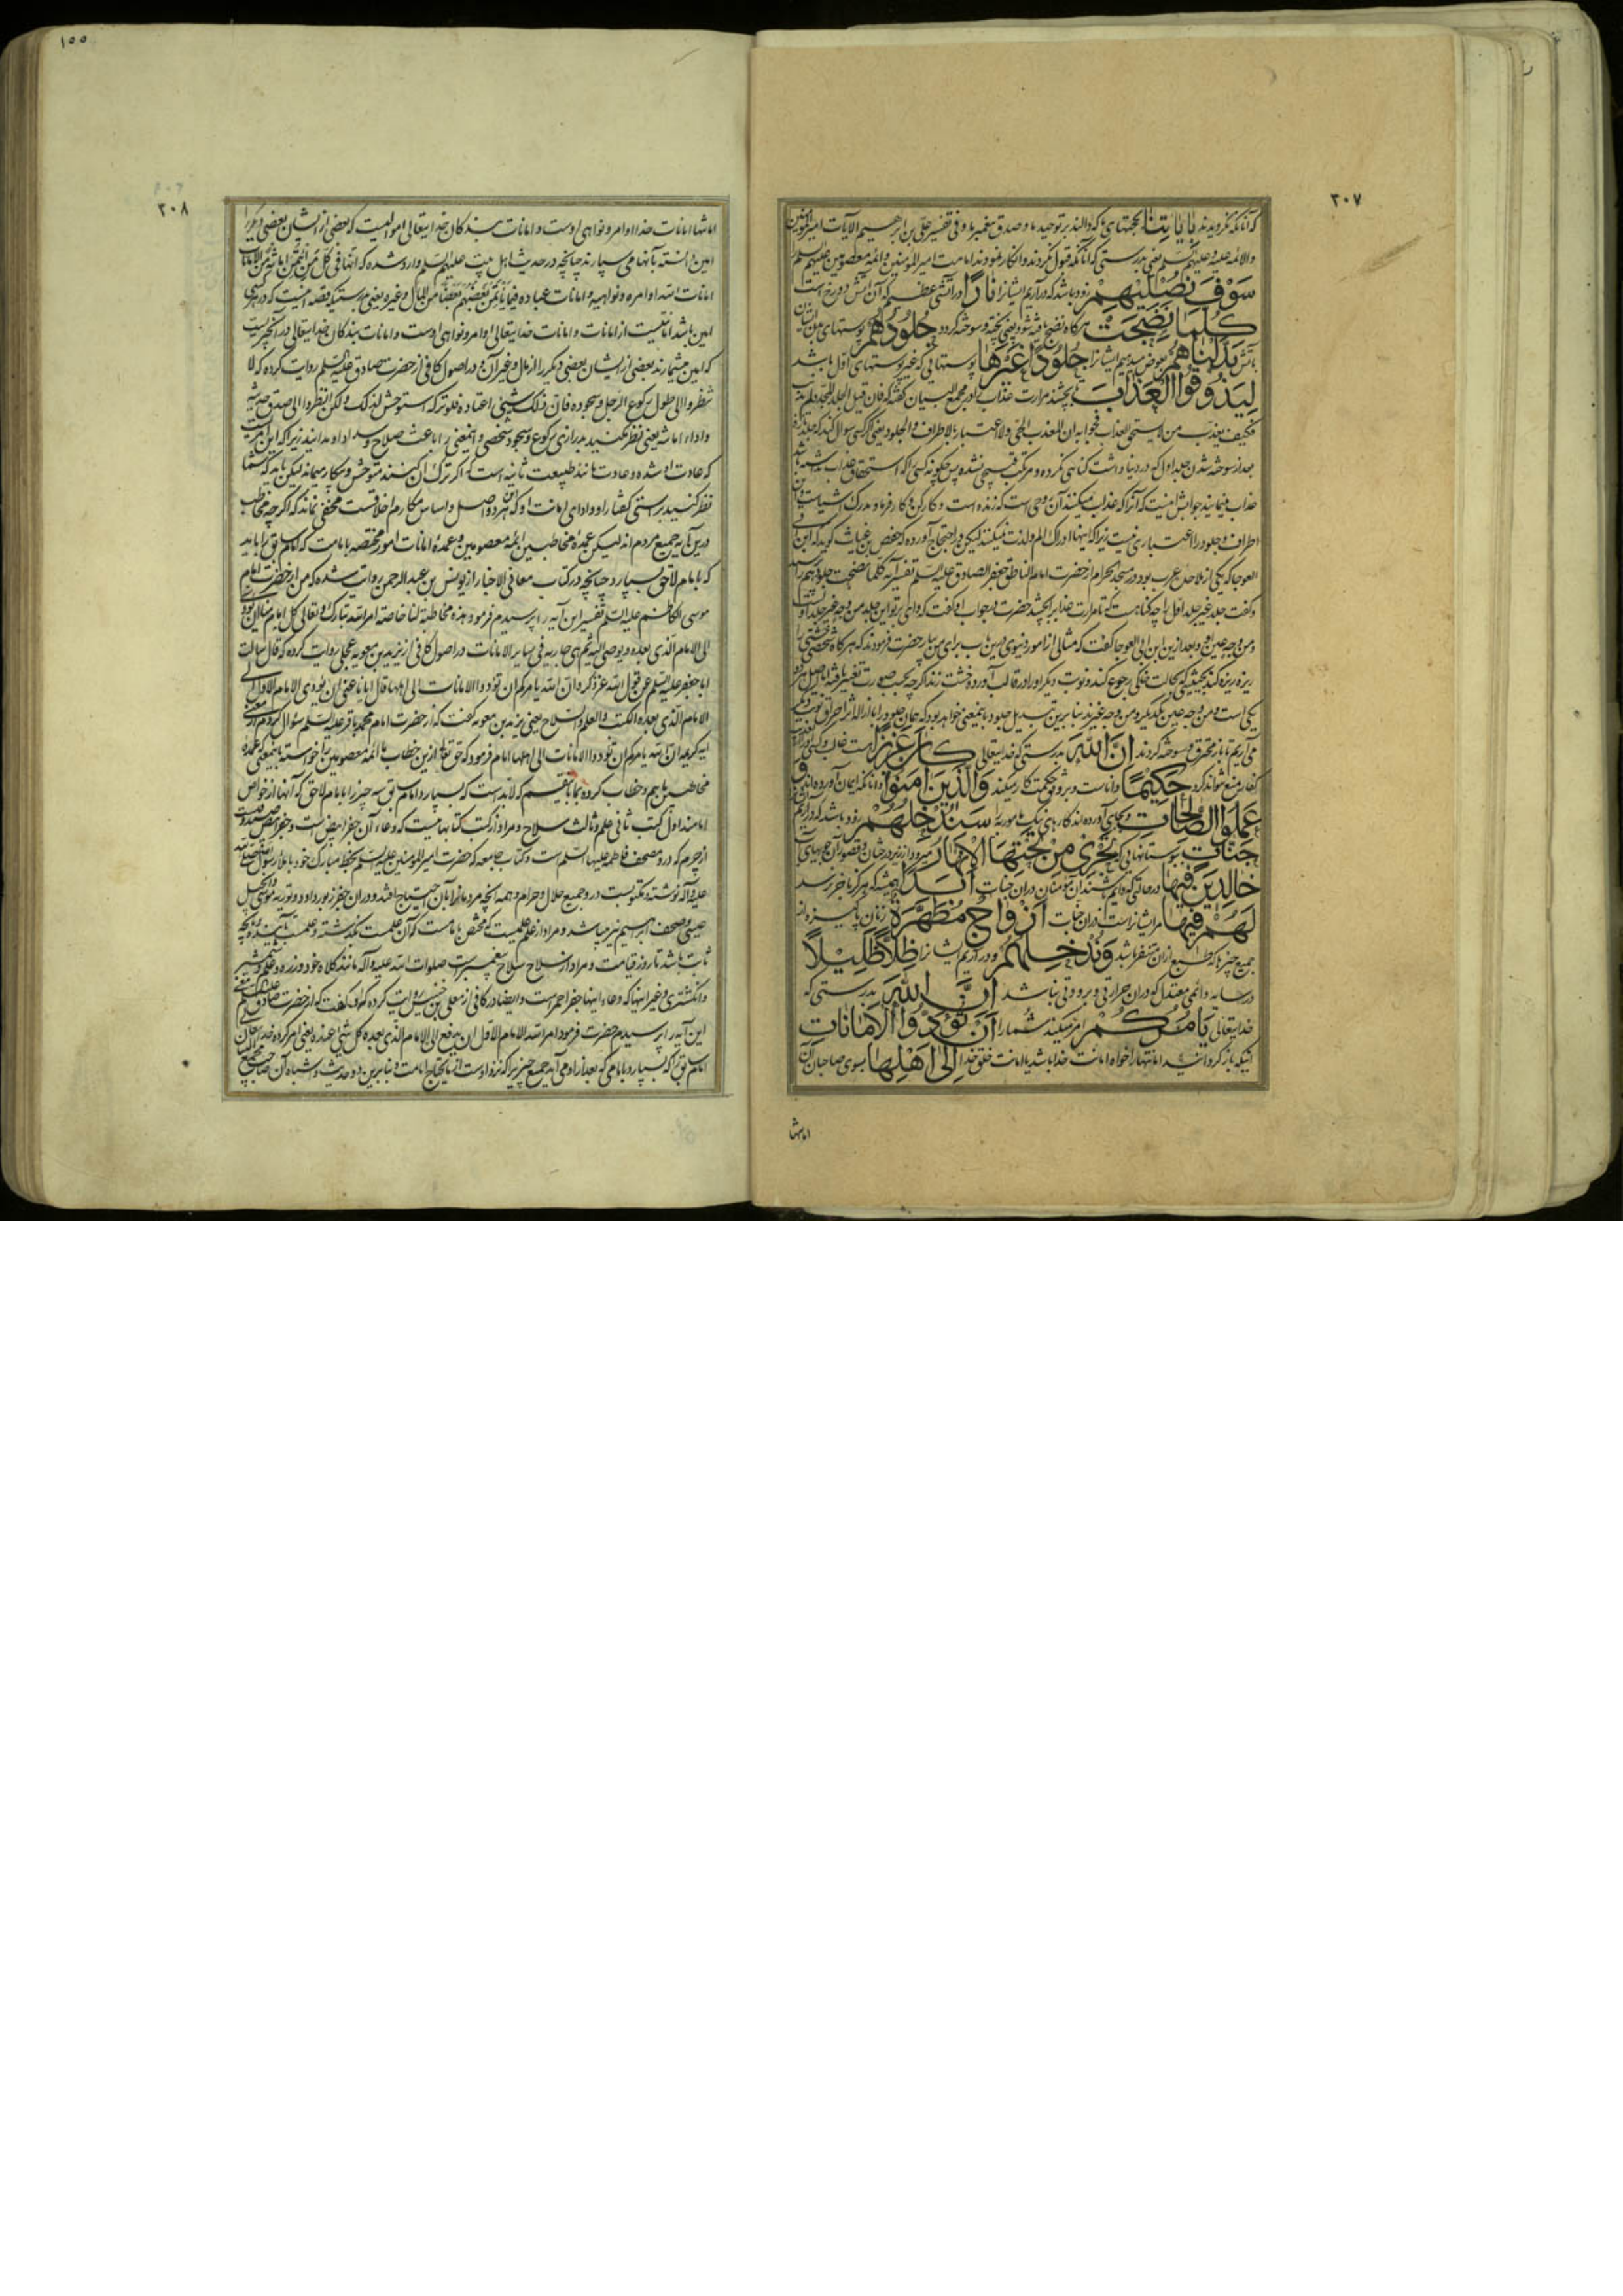 ۲۰۷
که آنانکه نگرویدند بِآیَاتِنَا بحجتهای ما که دالند بر توحید ما و صدق پیغمبر ما و فی تفسیر علی بن ابرهیم الآیات امیر المؤمنین
والائمه علیه و علیهم السلم یعنی بدرستی که آنانکه قبول نکردند و انکار نمودند امامت امیر المؤمنین و ائمه معصومین علیهم السلم
سَوْفَ نُصْلِیهِمْ زود باشد که درآریم ایشانرا نَارًا در آتشی عظیم که آن آتش دوزخ است
كُلَّمَا نَضِجَتْ هرگاه نضج یافته شود یعنی پخته و سوخته گردد جُلُودُهُمْ پوستهای بدن ایشان
بآتش بَدَّلْنَاهُمْ بعوض میدهیم ایشانرا جُلُودًا غَيْرَهَا پوستهایی که غیر پوستهای اول باشد
لِيَذُوقُوا الْعَذَابَ تا بچشند مرارت عذاب را در مجمع البیان گفته که فان قیل
فکیف یعذب من لا یستحق العذاب فجوابه ان المعذب الحی ولا اعتبار بالاطراف والجلود یعنی اگر کسی سوال کند که جلد تازه
بعد از سوخته شدن جلد اول که در دنیا داشت گناهی نکرده و مرتکب قبیحی نشده پس چگونه کسی را که استحقاق عذاب نداشته باشد
عذاب مینمایند جوابش اینست که آنرا که عذاب میکنند آن روحی است که زنده است و کارکن و کارفرما و مدرک اشیاست و این
اطراف و جلود را اعتباری نیست زیرا که اینها ادراک الم و لذت نمیکنند لیکن در احتجاج آورده که حفص بن غیاث گوید که ابن ابی
العوجا که یکی از ملاحده عرب بود در مسجد الحرام از حضرت امام الناطق جعفر الصادق علیه السلم تفسیر آیه کلما نضجت جلودهم را پرسید
و گفت جلد غیر جلد اول را چه گناه است که تا مرارت عذاب را بچشد حضرت در جواب او گفت که وای بر تو این جلد من وجه غیر جلد اولست
و من وجه عین او و بعد ازین ابن ابی العوجا گفت که مثالی از امور دنیوی درین باب برای من بیار حضرت فرمودند که هرگاه شخصی خشتی را
ریزه ریزه کند بحیثیتی که بحالت خاکی رجوع کند و نوبت دیگر او را در قالب آورد و خشت زند اگرچه بحسب صورت تغییر یافته اما اصل هر دو
یکی است و من وجه عین یکدیگرند و من وجه غیرند بنابرین تبدیل جلود باینمعنی خواهد بود که همان جلود را با ازاله اثر احراق نوبت دیگر
می‌آریم تا باز محترق و سوخته گردند اِنَّ اللهَ بدرستی که خدایتعالی كَانَ عَزِيزًا هست غالب و کسی او را از
کفار منع نتواند کرد حَكِيمًا داناست و بر وفق حکمت کار میکند وَالَّذِينَ آمَنُوا و آنانکه ایمان آورده‌اند وَ
عَمِلُوا الصَّالِحَاتِ و بجای آورده‌اند کارهای نیک مامور به را سَنُدْخِلُهُمْ زود باشد که درآریم
جَنَّاتٍ ببوستانهایی که تَجْرِي مِنْ تَحْتِهَا الْأَنْهَارُ میرود از زیر درختان و قصور آن جویهای آب
خَالِدِينَ فِيهَا در حالتی که دایم باشند آن مؤمنان در آن جنات اَبَدًا همیشه که هرگز بآخر نرسد
لَهُمْ فِيهَا مر ایشانراست در آن جنات اَزْوَاجٌ مُطَهَّرَةٌ زنان پاکیزه از
جمیع چیزها که طبع از آن متنفر باشد وَنُدْخِلُهُمْ و درآریم ایشانرا ظِلًّا ظَلِيلًا
در سایه دائمی معتدل که در آن حرارتی و برودتی نباشد اِنَّ اللهَ بدرستی که
خدایتعالی يَأْمُرُكُمْ امر میکند شما را اَنْ تُؤَدُّوا الْأَمَانَاتِ
اینکه باز گردانید امانتها را خواه امانت خدا باشد یا امانت خلق خدا اِلَى اَهْلِهَا بسوی صاحبان آن
امانتها
۱۰۰
۲۰۸
امانتها امانات خدا اوامر و نواهی اوست و امانات بندگان خدایتعالی اموالیست که بعضی از ایشان بعضی دیگر را
امین دانسته بآنها می‌سپارند چنانچه در حدیث اهل بیت علیهم السلم وارد شده که انها فی کل من ائتمن امانة من الامانات
امانات الله اوامره و نواهیه و امانات عباده فیما یاتمن بعضهم بعضا من المال و غیره یعنی بدرستیکه قصه اینست که در هر کسی
امین باشد امانتیست از امانات و امانات خدایتعالی اوامر و نواهی اوست و امانات بندگان خدایتعالی در آن چیزیست
که امین میشمارند بعضی از ایشان بعضی دیگر را از مال و غیر آن و در اصول کافی از حضرت صادق علیه السلم روایت کرده که لا
تنظروا الی طول رکوع الرجل و سجوده فان ذلک شیئ اعتاده فلو ترکه استوحش لذلک ولکن انظروا الی صدق حدیثه
واداء امانته یعنی نظر مکنید بدرازی رکوع و سجود شخصی و اینمعنی را باعث صلاح و سداد او مدانید زیرا که این امریست
که عادت او شده و عادت مانند طبیعت ثانیه است اگر ترک آن کند متوحش و بیکار میماند لیکن باید که شما
نظر کنید براستی گفتار او و ادای امانت او که این هر دو اصل و اساس مکارم اخلاقست مخفی نماند که اگرچه مخاطب
درین آیه جمیع مردم‌اند لیکن عمدهٔ مخاطبین ائمه معصومین و عمدهٔ امانات امور مختصه بامامت که امام سابق را باید
که بامام لاحق بسپارد چنانچه در کتاب معانی الاخبار از یونس بن عبد الرحمن روایت شده که من از حضرت امام
موسی الکاظم علیه السلم تفسیر این آیه را پرسیدم فرمود هذه مخاطبة لنا خاصة امر الله تبارک و تعالی کل امام منا ان یؤدی
الی الامام الذی بعده و یوصی الیه ثم هی جاریة فی سایر الامانات و در اصول کافی از برید بن معویه عجلی روایت کرده که قال سالت
ابا جعفر علیه السلم عن قول الله عز ذکره ان الله یامرکم ان تؤدوا الامانات الی اهلها قال ایانا عنی ان یؤدی الامام الاول الی
الامام الذی بعده الکتب والعلم والسلاح یعنی برید بن معویه گفت که از حضرت امام محمد باقر علیه السلم سؤال کردم از معنی
آیه کریمه ان الله یامرکم ان تؤدوا الامانات الی اهلها امام فرمود که حق تعالی ازین خطاب ما ائمه معصومین را خواسته باینمعنی که عمدهٔ
مخاطبین مائیم و خطاب کرده بما باین قسم که لابدست که بسپارد امام سابق سه چیز را بامام لاحق که آنها از خواص
امامتند اول کتب ثانی علم و ثالث سلاح و مراد از کتب کتابهاییست که وعاء آن جفر ابیض است و جفر ابیض صندوقیست
از چرم که در او مصحف فاطمه علیها السلم است و کتاب جامعه که حضرت امیر المؤمنین علیه السلم بخط مبارک خود باملاء رسول الله صلی الله
علیه و آله نوشته و مکتوبست در او جمیع حلال و حرام و همه آنچه مردمانرا بآن احتیاج افتد و در آن جفر زبور داود و توریه موسی و انجیل
عیسی و صحف ابرهیم نیز میباشد و مراد از علم علمیست که مختص بامامت که آن علمست بگذشته و علمست بآینده و بآنچه
ثابت باشد تا روز قیامت و مراد از سلاح سلاح پیغمبرست صلوات الله علیه و آله مانند کلاه خود و زره و علم و شمشیر
و انگشتری و غیر اینها که وعاء اینها جفر احمرست و ایضا در کافی از معلی بن خنیس روایت کرده که او گفت که از حضرت صادق علیه السلم معنی
این آیه را پرسیدم حضرت فرمود امر الله الامام الاول ان یدفع الی الامام الذی بعده کل شیئ عنده یعنی امر کرده خدایتعالی
امام سابق را که بسپارد بامامی که بعد از او می‌آید جمیع چیزیرا که نزد اوست از مایحتاج امامت و بنابرین دو حدیث و اشباه آن صاحب مجمع البیان